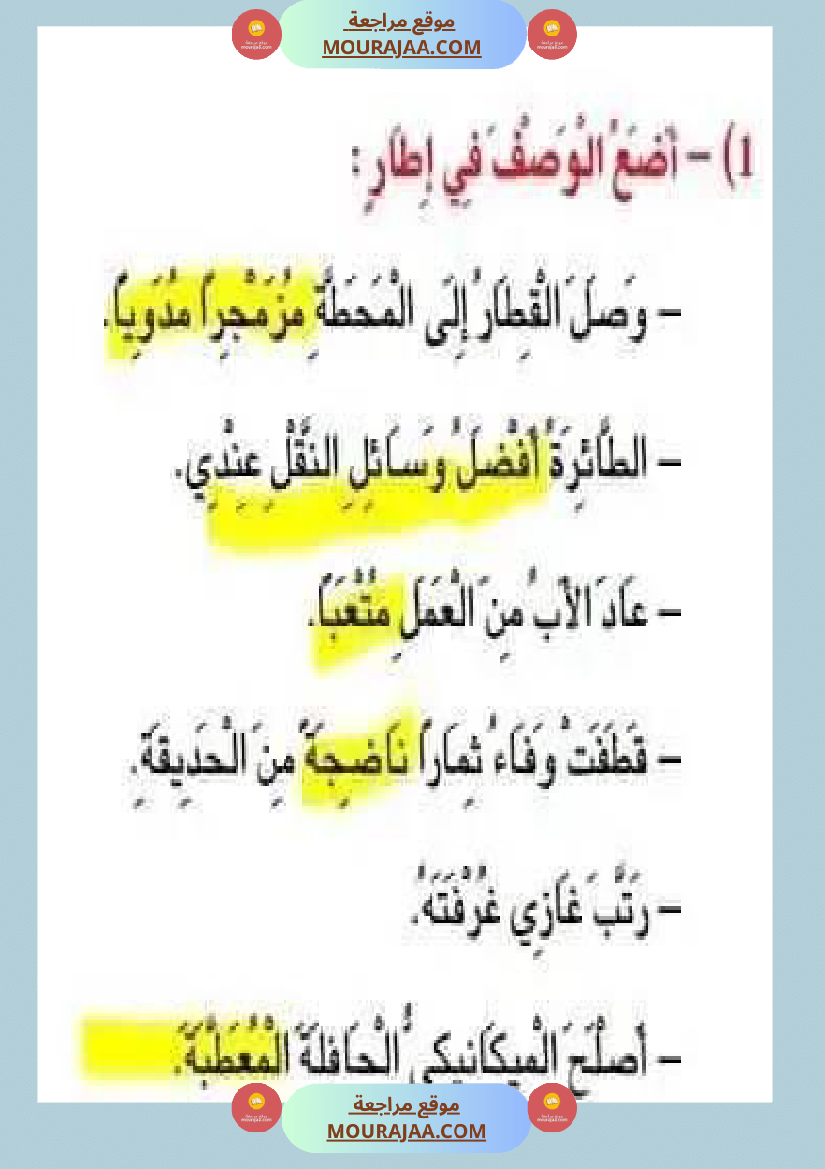 موقع مراجعة
MOURAJAA.COM
1) – أَضَعُ الْوَصْفَ فِي إِطَارٍ :
– وَصَلَ الْقِطَارُ إِلَى الْمَحَطَّةِ مُزَمْجِراً مُدَوِياً.
– الطَّائِرَةُ أَفْضَلُ وَسَائِلِ النَّقْلِ عِنْدِي.
– عَادَ الأَبُ مِنَ الْعَمَلِ مُتْعَباً.
– قَطَفَتْ وَفَاءُ ثِمَاراً نَاضِجَةً مِنَ الْحَدِيقَةِ.
– رَتَّبَ غَازِي غُرْفَتَهُ.
– أَصْلَحَ الْمِيكَانِيكِيُّ الْحَافِلَةَ الْمُعَطَّبَةَ.
موقع مراجعة
MOURAJAA.COM